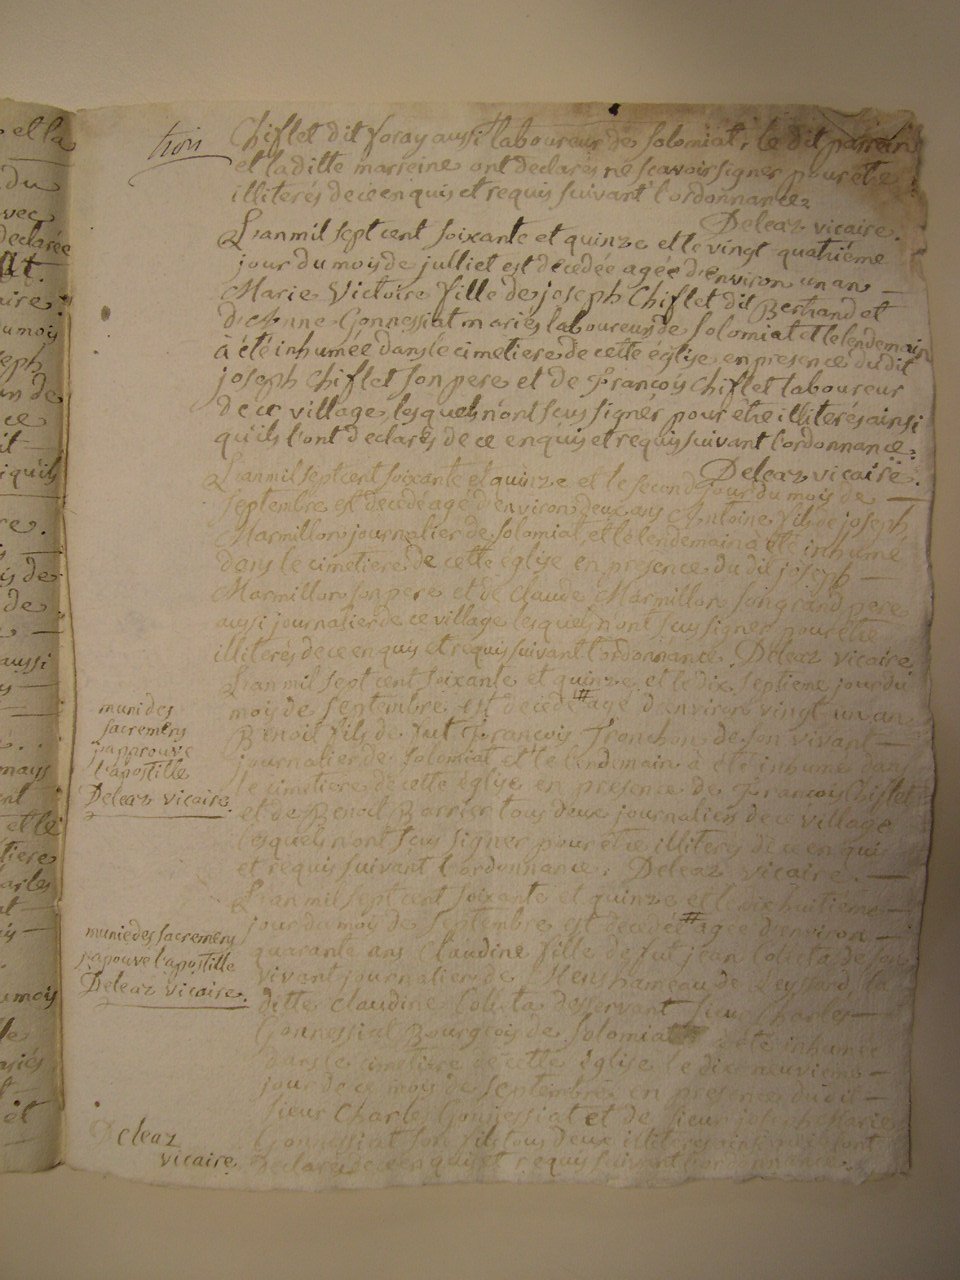 trois
Chiflet dit foray aussi laboureur de Solomiat, le dit parrein
et la ditte marreine ont declarés ne scavoir signer pour etre
illiterés de ce enquis et requis suivant l'ordonnance
Deleaz vicaire.
L'an mil sept cent soixante et quinze et le vingt quatriéme
jour du mois de julliet est decedée agée d'environ un an —
Marie Victoire fille de joseph Chiflet dit Bertrand et
d'Anne Gonnessiat mariés laboureurs de Solomiat et le lendemain
à été inhumée dans le cimetiere de cette église en presence du dit
joseph Chiflet son pere et de François Chiflet laboureur
de ce village, lesquels n'ont sçus signér pour étre illiterés ainsi
qu'ils l'ont declarés de ce enquis et requis suivant l'ordonnance.
Deleaz vicaire.
L'an mil sept cent soixante et quinze et le second jour du mois de —
septembre est decedé agé d'environ deux ans Antoine fils de joseph
Marmillon journalier de Solomiat, et le lendemain à été inhumé
dans le cimetiere de cette église en presence du dit joseph —
Marmillon son pere et de Claude Marmillon son grand pere
aussi journalier de ce village lesquels n'ont sçus signer pour étre
illiterés de ce enquis et requis suivant l'ordonnance. Deleaz vicaire
L'an mil sept cent soixante et quinze et le dix septieme jour du
mois de septembre est decedé # agé d'environ vingt un an
Benoit fils de fut François Tronchon de son vivant —
journalier de Solomiat et le lendemain à été inhumé dans
le cimetiere de cette église en presence de François Chiflet
et de Benoit tous deux journaliers de ce village
lesquels n'ont sçus signer pour étre illiterés de ce enquis
et requis suivant l'ordonnance. Deleaz vicaire. —
muni des
sacremens
j'approuve
l'apostille
Deleaz vicaire.
L'an mil sept cent soixante et quinze et le dix huitiéme —
jour du mois de septembre est decedée # agée d'environ —
quarante ans Claudine fille de fut jean Colleta de son
vivant journalier de hameau de Leyssard, la
ditte Claudine Colleta servant sieur Charles —
Gonnessiat Bourgeois de Solomiat à été inhumée
dans le cimetiere de cette église le dix neuvieme —
jour de ce mois de septembre en presence du dit —
sieur Charles Gonnessiat et de sieur joseph Marie
Gonnessiat son fils tous deux illiterés ainsi qu'ils l'ont
declarés de ce enquis et requis suivant l'ordonnance.
munie des sacremens
j'apouve l'apostille
Deleaz vicaire.
Deleaz
vicaire